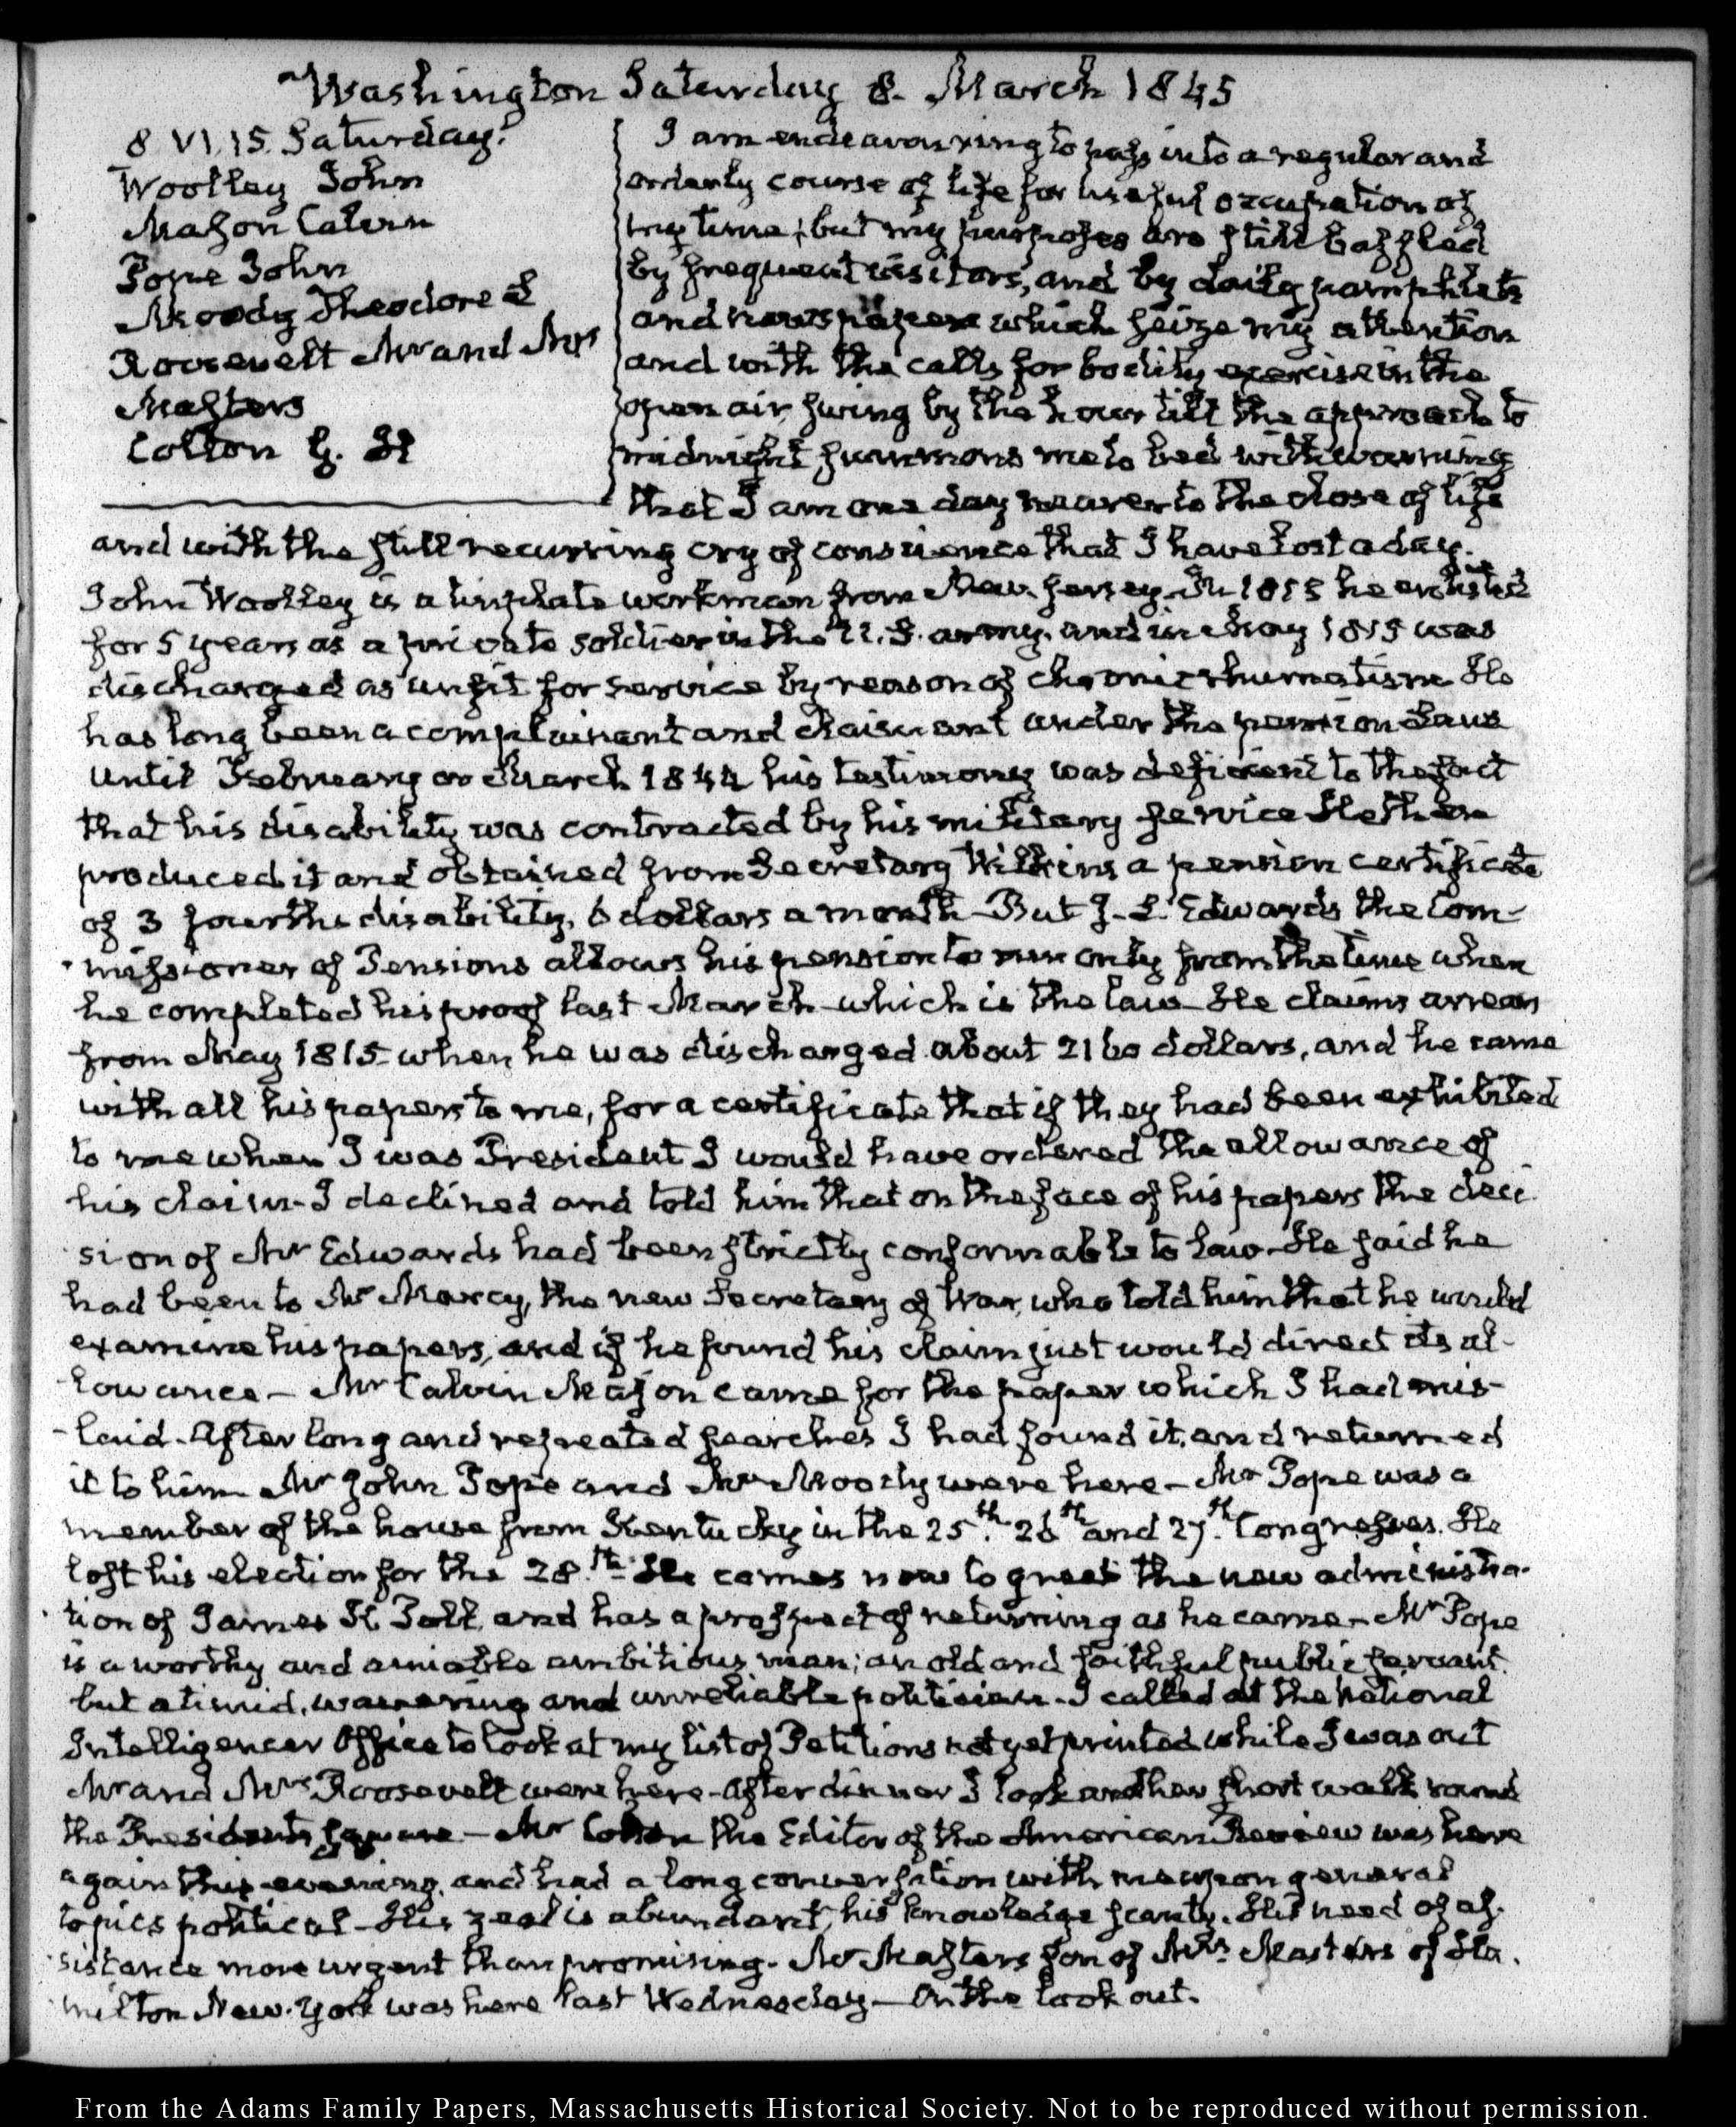 Washington Saturday 8. March 1845
8 VI.15. Saturday.
Woolley John
Mason Calvin
Pope John
Moody Theodore L
Roosevelt Mr and Mrs
Masters
Colton G. H
I am endeavouring to pass into a regular and
orderly course of life for useful occupation of
my time; but my purposes are still baffled
by frequent visitors, and by daily pamphlets
and newspapers which seize my attention
and with the calls for bodily exercise in the
open air, swing by the hour till the approach to
midnight summons me to bed with warning
that I am one day nearer to the close of life
and with the still recurring cry of conscience that I have lost a day.
John Woolley is a tinplate workman from New-Jersey. In 1813 he enlisted
for 5 years as a private soldier in the U.S. army. and in May 1815 was
discharged as unfit for service by reason of chronic rhumatism He
has long been a complainant and claimant under the pension Laws
until February or March 1844 his testimony was deficient to the fact
that his disability was contracted by his military service He then
produced it and obtained from Secretary Wilkins a pension certificate
of 3 fourths disability, 6 dollars a month - But J. L. Edwards the Com-
missioner of Pensions allows his pension to run only from the time when
he completed his proof last March - which is the law - He claims arrears
from May 1815 when he was discharged about 2160 dollars, and he came
with all his papers to me, for a certificate that if they had been exhibited
to me when I was President I would have ordered the allowance of
his claim - I declined and told him that on the face of his papers the deci
sion of Mr Edwards had been strictly conformable to law - He said he
had been to Mr Marcy, the new Secretary of War, who told him that he would
examine his papers, and if he found his claim just would direct its al-
lowance - Mr Calvin Mason came for the paper which I had mis-
laid - After long and repeated searches I had found it, and returned
it to him - Mr John Pope and Mr Moody were here - Mr Pope was a
member of the house from Kentucky in the 25th. 26th and 27th. Congresses. He
lost his election for the 28th. - He comes now to greet the new administra-
tion of James K Polk, and has a prospect of returning as he came - Mr Pope
is a worthy and amiable ambitious man; an old and faithful public servant.
but a timid, wavering and unreliable politician - I called at the National
Intelligencer Office to look at my list of Petitions not yet printed while I was out
Mr and Mrs Roosevelt were here - After dinner I took another short walk round
the President's square - Mr Colton the Editor of the American Review was here
again this evening, and had a long conversation with me upon general
topics political - His zeal is abundant, his knowledge scanty. His need of as-
sistance more urgent than promising. Mr Masters son of Mrs. Masters of Ha.
milton New-York was here last Wednesday - On the look out.
From the Adams Family Papers, Massachusetts Historical Society. Not to be reproduced without permission.